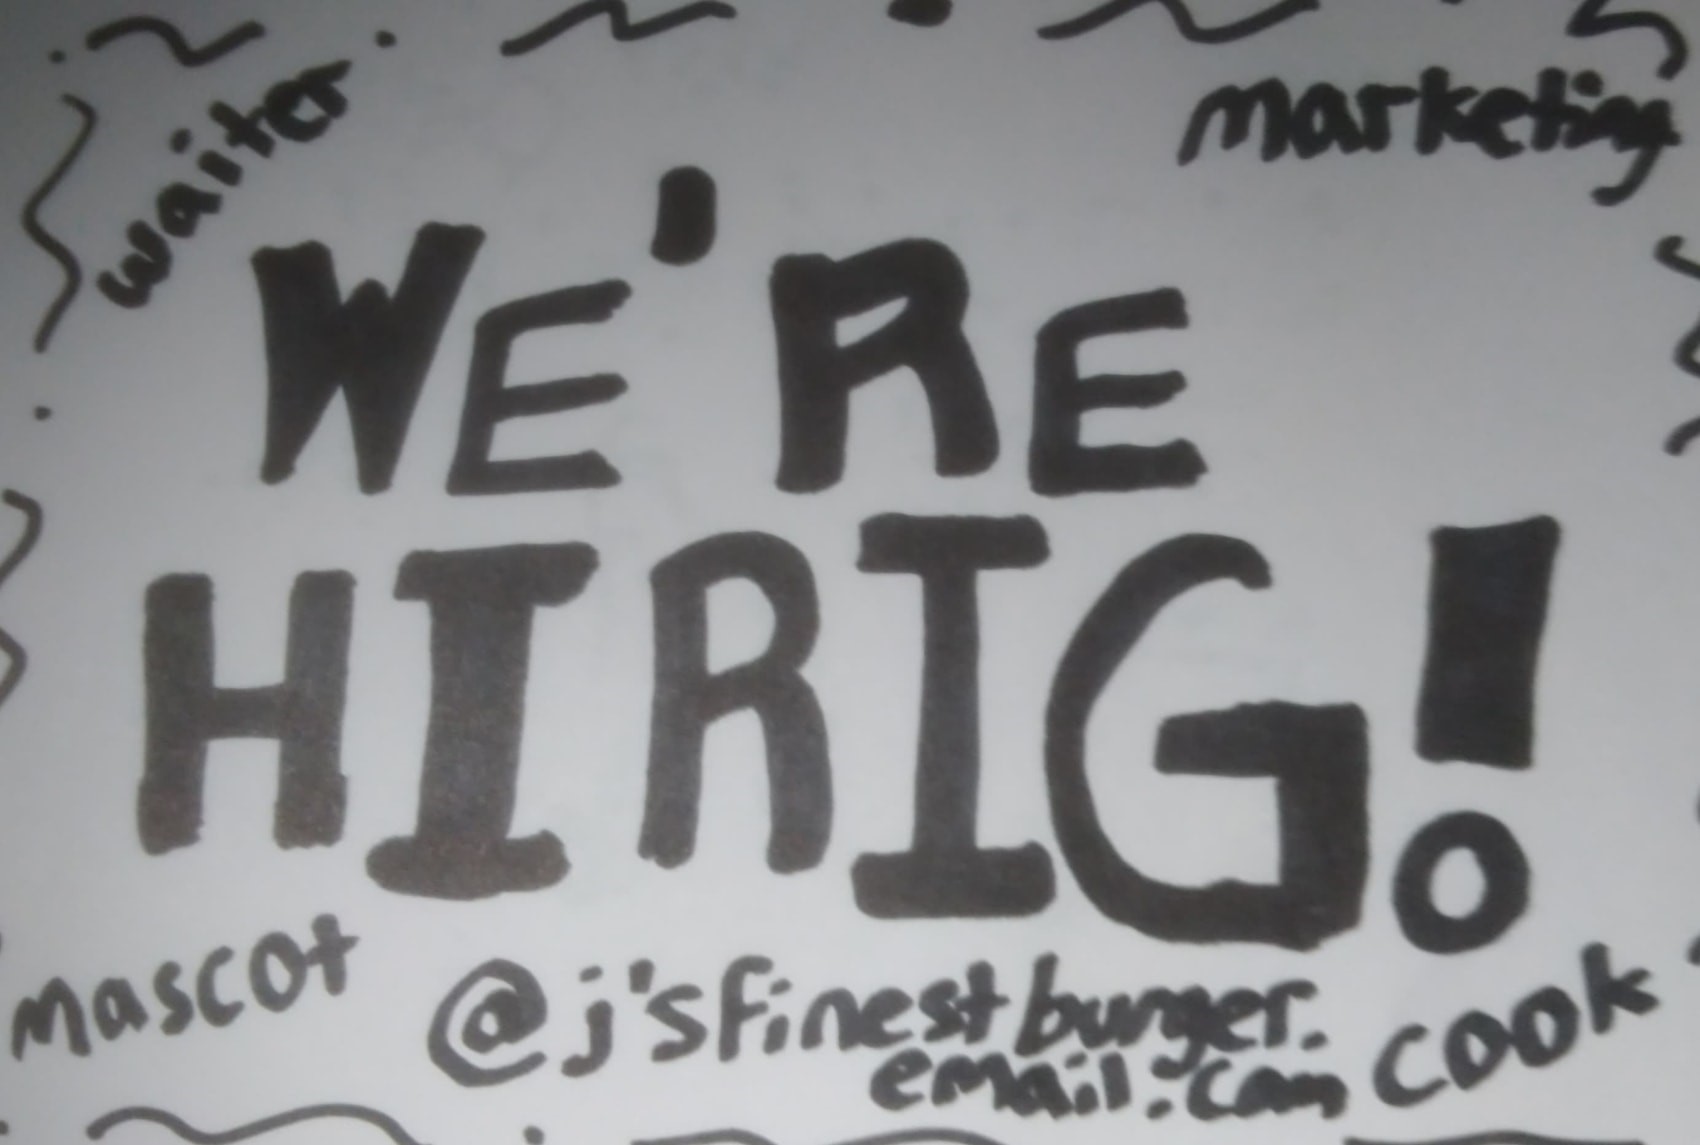 waiter
marketing
WE'RE
HIRIG!
mascot
@j'sfinestburger.
email.com
cook